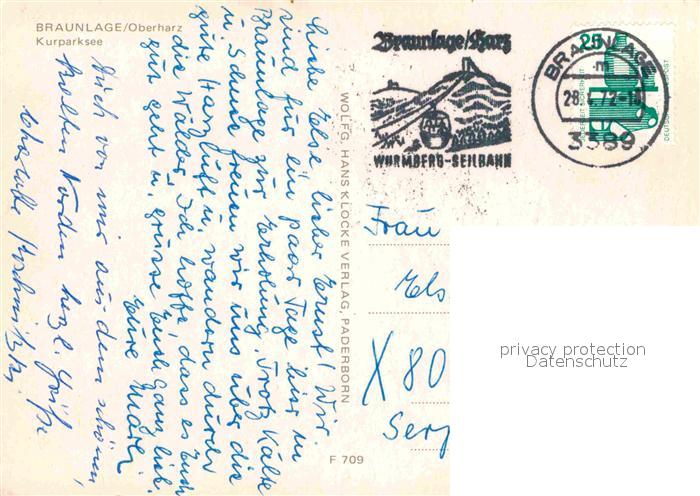 BRAUNLAGE/Oberharz
Kurparksee
Liebe Else, lieber Ernst! Wir
sind für ein paar Tage hier in
Braunlage zur Erholung. Trotz Kälte
u. Schnee freuen wir uns über die
gute Harzluft u. wandern durch
die Wälder. Ich hoffe, dass es Euch
gut geht u. grüsse Euch ganz lieb.
Eure
Auch von mir aus dem schönen,
kalten Norden herzl. Grüße
WOLFG. HANS KLOCKE VERLAG, PADERBORN
F 709
Braunlage/Harz
WURMBERG-SEILBAHN
BRAUNLAGE
3389
25
Frau
Els
X 80
privacy protection
Datenschutz